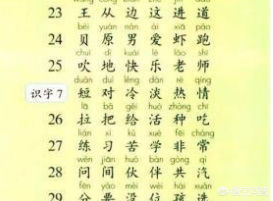 23 王 从 边 这 进 道
bèi yuán nán ài xiā pǎo
24 贝 原 男 爱 虾 跑
chuī dì kuài lè lǎo shī
25 吹 地 快 乐 老 师
duǎn duì lěng dàn rè qíng
识字7 短 对 冷 淡 热 情
lā bǎ gěi huó zhòng chī
26 拉 把 给 活 种 吃
liàn xí kǔ xué fēi cháng
27 练 习 苦 学 非 常
wèn jiān huǒ bàn gòng qì
28 问 间 伙 伴 共 汽
fēn yào méi wèi hái xuǎn
29 分 要 没 位 孩 选